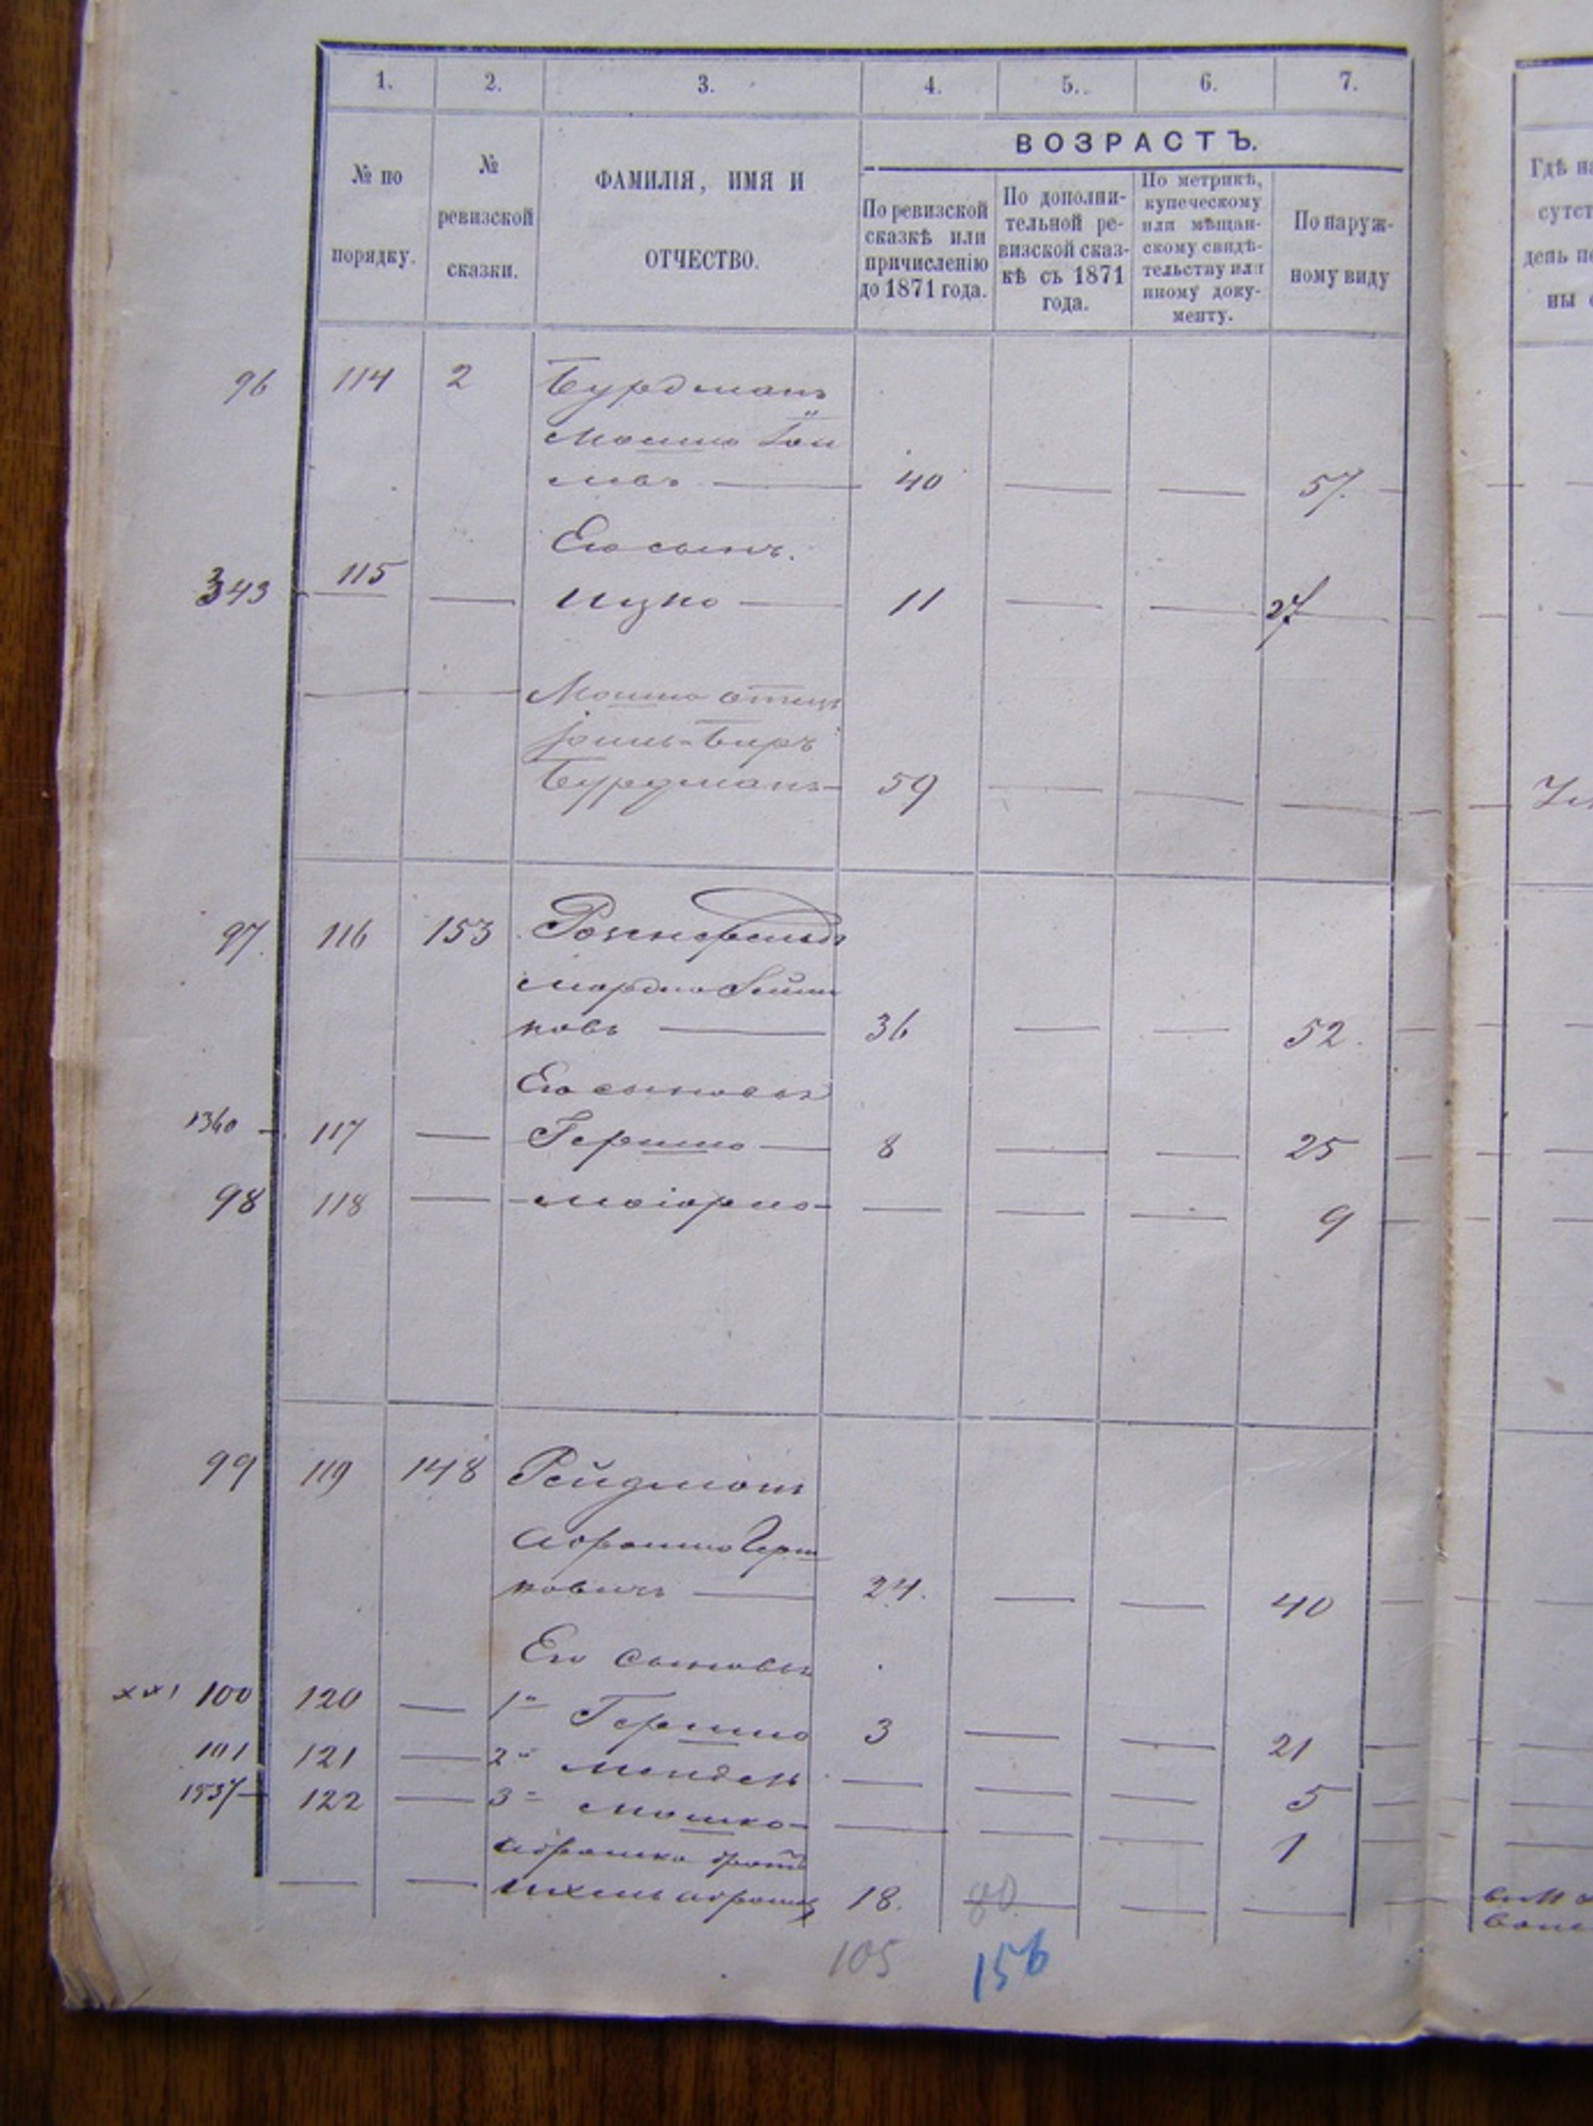 1. 2. 3. 4. 5. 6. 7.
№ по порядку.
№ ревизской сказки.
ФАМИЛІЯ, ИМЯ И ОТЧЕСТВО.
ВОЗРАСТЪ.
По ревизской сказкѣ или причисленію до 1871 года.
По дополни-тельной ре-визской сказ-кѣ съ 1871 года.
По метрикѣ, купеческому или мѣщан-скому свидѣ-тельству или иному доку-менту.
По наруж-ному виду
Гдѣ
96 114 2 Бурдманъ
Мошко
40 57
Его сынъ.
343 115 Ицко 11 27
Мошко отецъ
Бурдманъ 59
97. 116 153 Розенфельдъ
Мордко
36 52
Его сыновья
1360 117 Гершко 8 25
98 118 9
99 119 148 Рейдманъ
Абрамко Герш
ковичъ 24. 40
Его сыновья
100 120 1 Гершко 3 21
101 121 2 Мендель 5
1537 122 3 Мошко 1
Абрамка братъ
18. 80
105 156